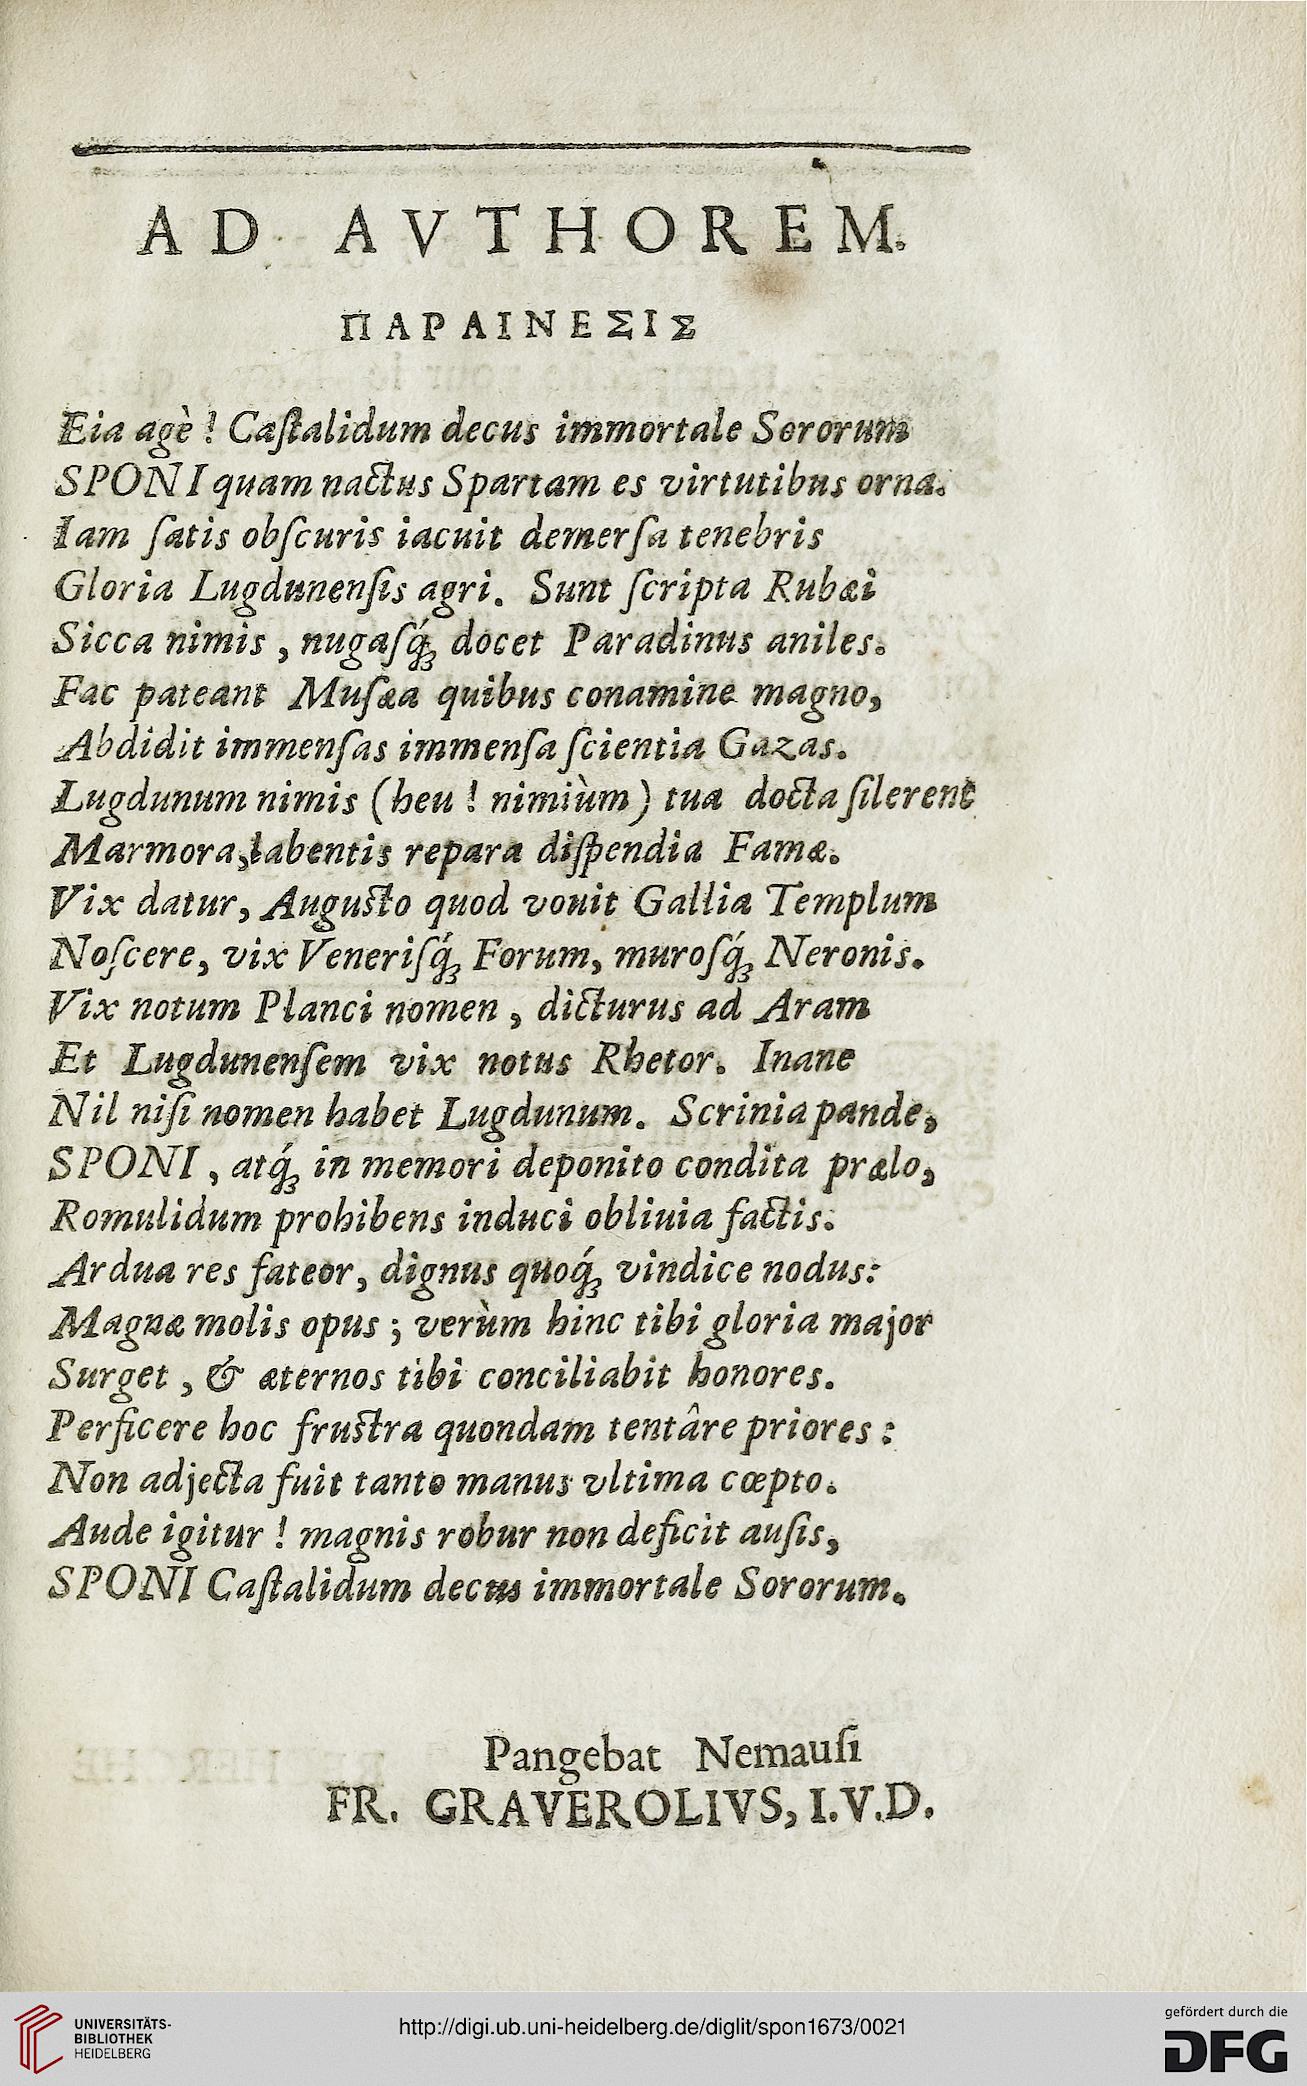 AD AVTHOREM.
ΠΑΡΑΙΝΕΣΙΣ
Eia agè ! Caſtalidum decus immortale Sororum
SPONI quam nactus Spartam es virtutibus orna.
Iam ſatis obſcuris iacuit demerſa tenebris
Gloria Lugdunenſis agri. Sunt ſcripta Rubæi
Sicca nimis , nugaſq́ꝫ docet Paradinus aniles.
Fac pateant Muſæa quibus conamine magno,
Abdidit immenſas immenſa ſcientia Gazas.
Lugdunum nimis (heu ! nimiùm) tua docta ſilerent
Marmora, labentis repara diſpendia Famæ.
Vix datur, Augusto quod vouit Gallia Templum
Noſcere, vix Veneriſq́ꝫ Forum, muroſq́ꝫ Neronis.
Vix notum Planci nomen , dicturus ad Aram
Et Lugdunenſem vix notus Rhetor. Inane
Nil niſi nomen habet Lugdunum. Scrinia pande,
SPONI , atq́ꝫ in memori deponito condita prælo,
Romulidum prohibens induci obliuia factis.
Ardua res fateor, dignus quoq́ꝫ vindice nodus:
Magnæ molis opus ; verùm hinc tibi gloria major
Surget , & æternos tibi conciliabit honores.
Perficere hoc frustra quondam tentâre priores :
Non adjecta fuit tanto manus vltima cœpto.
Aude igitur ! magnis robur non deficit auſis,
SPONI Caſtalidum decus immortale Sororum.
Pangebat Nemauſi
FR. GRAVEROLIVS, I.V.D.
UNIVERSITÄTS-
BIBLIOTHEK
HEIDELBERG
http://digi.ub.uni-heidelberg.de/diglit/spon1673/0021
gefördert durch die
DFG